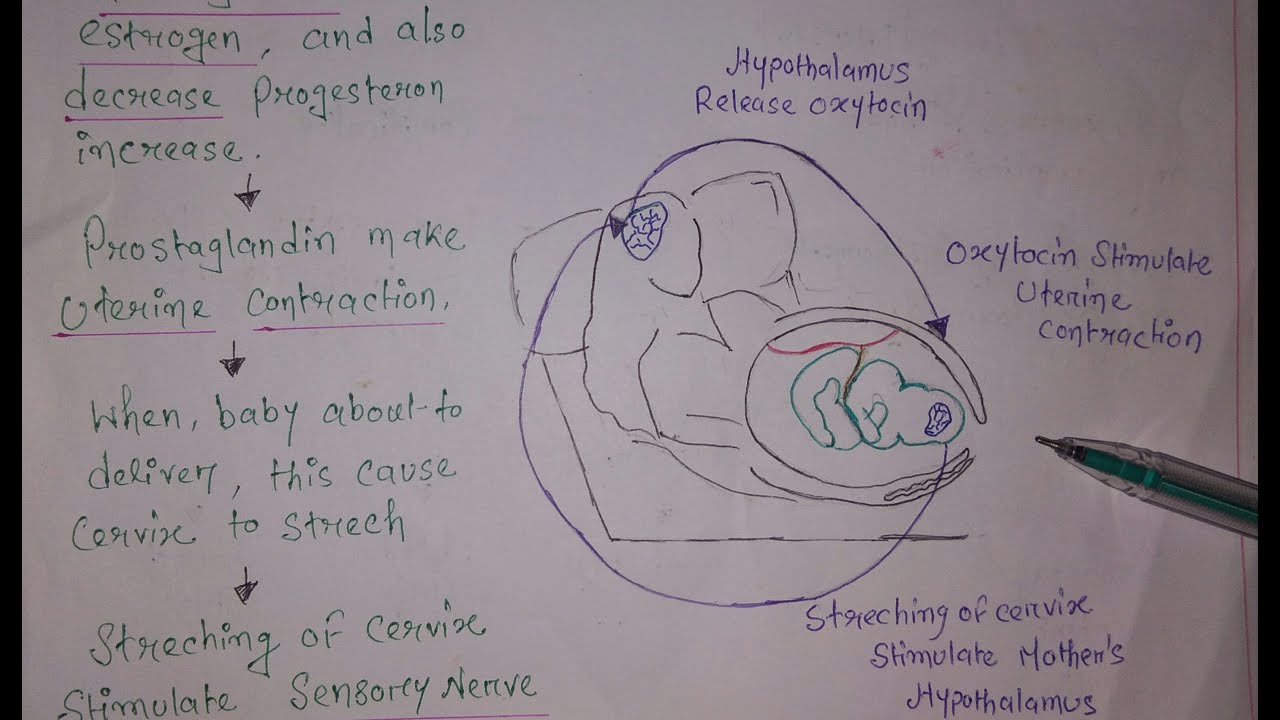 estrogen, and also
decrease Progesteron
increase.
Prostaglandin make
Uterine Contraction.
When, baby about to
deliver, this cause
Cervix to Strech
Streching of Cervix
Stimulate Sensory Nerve
Hypothalamus
Release Oxytocin
Oxytocin Stimulate
Uterine
Contraction
Streching of Cervix
Stimulate Mother's
Hypothalamus